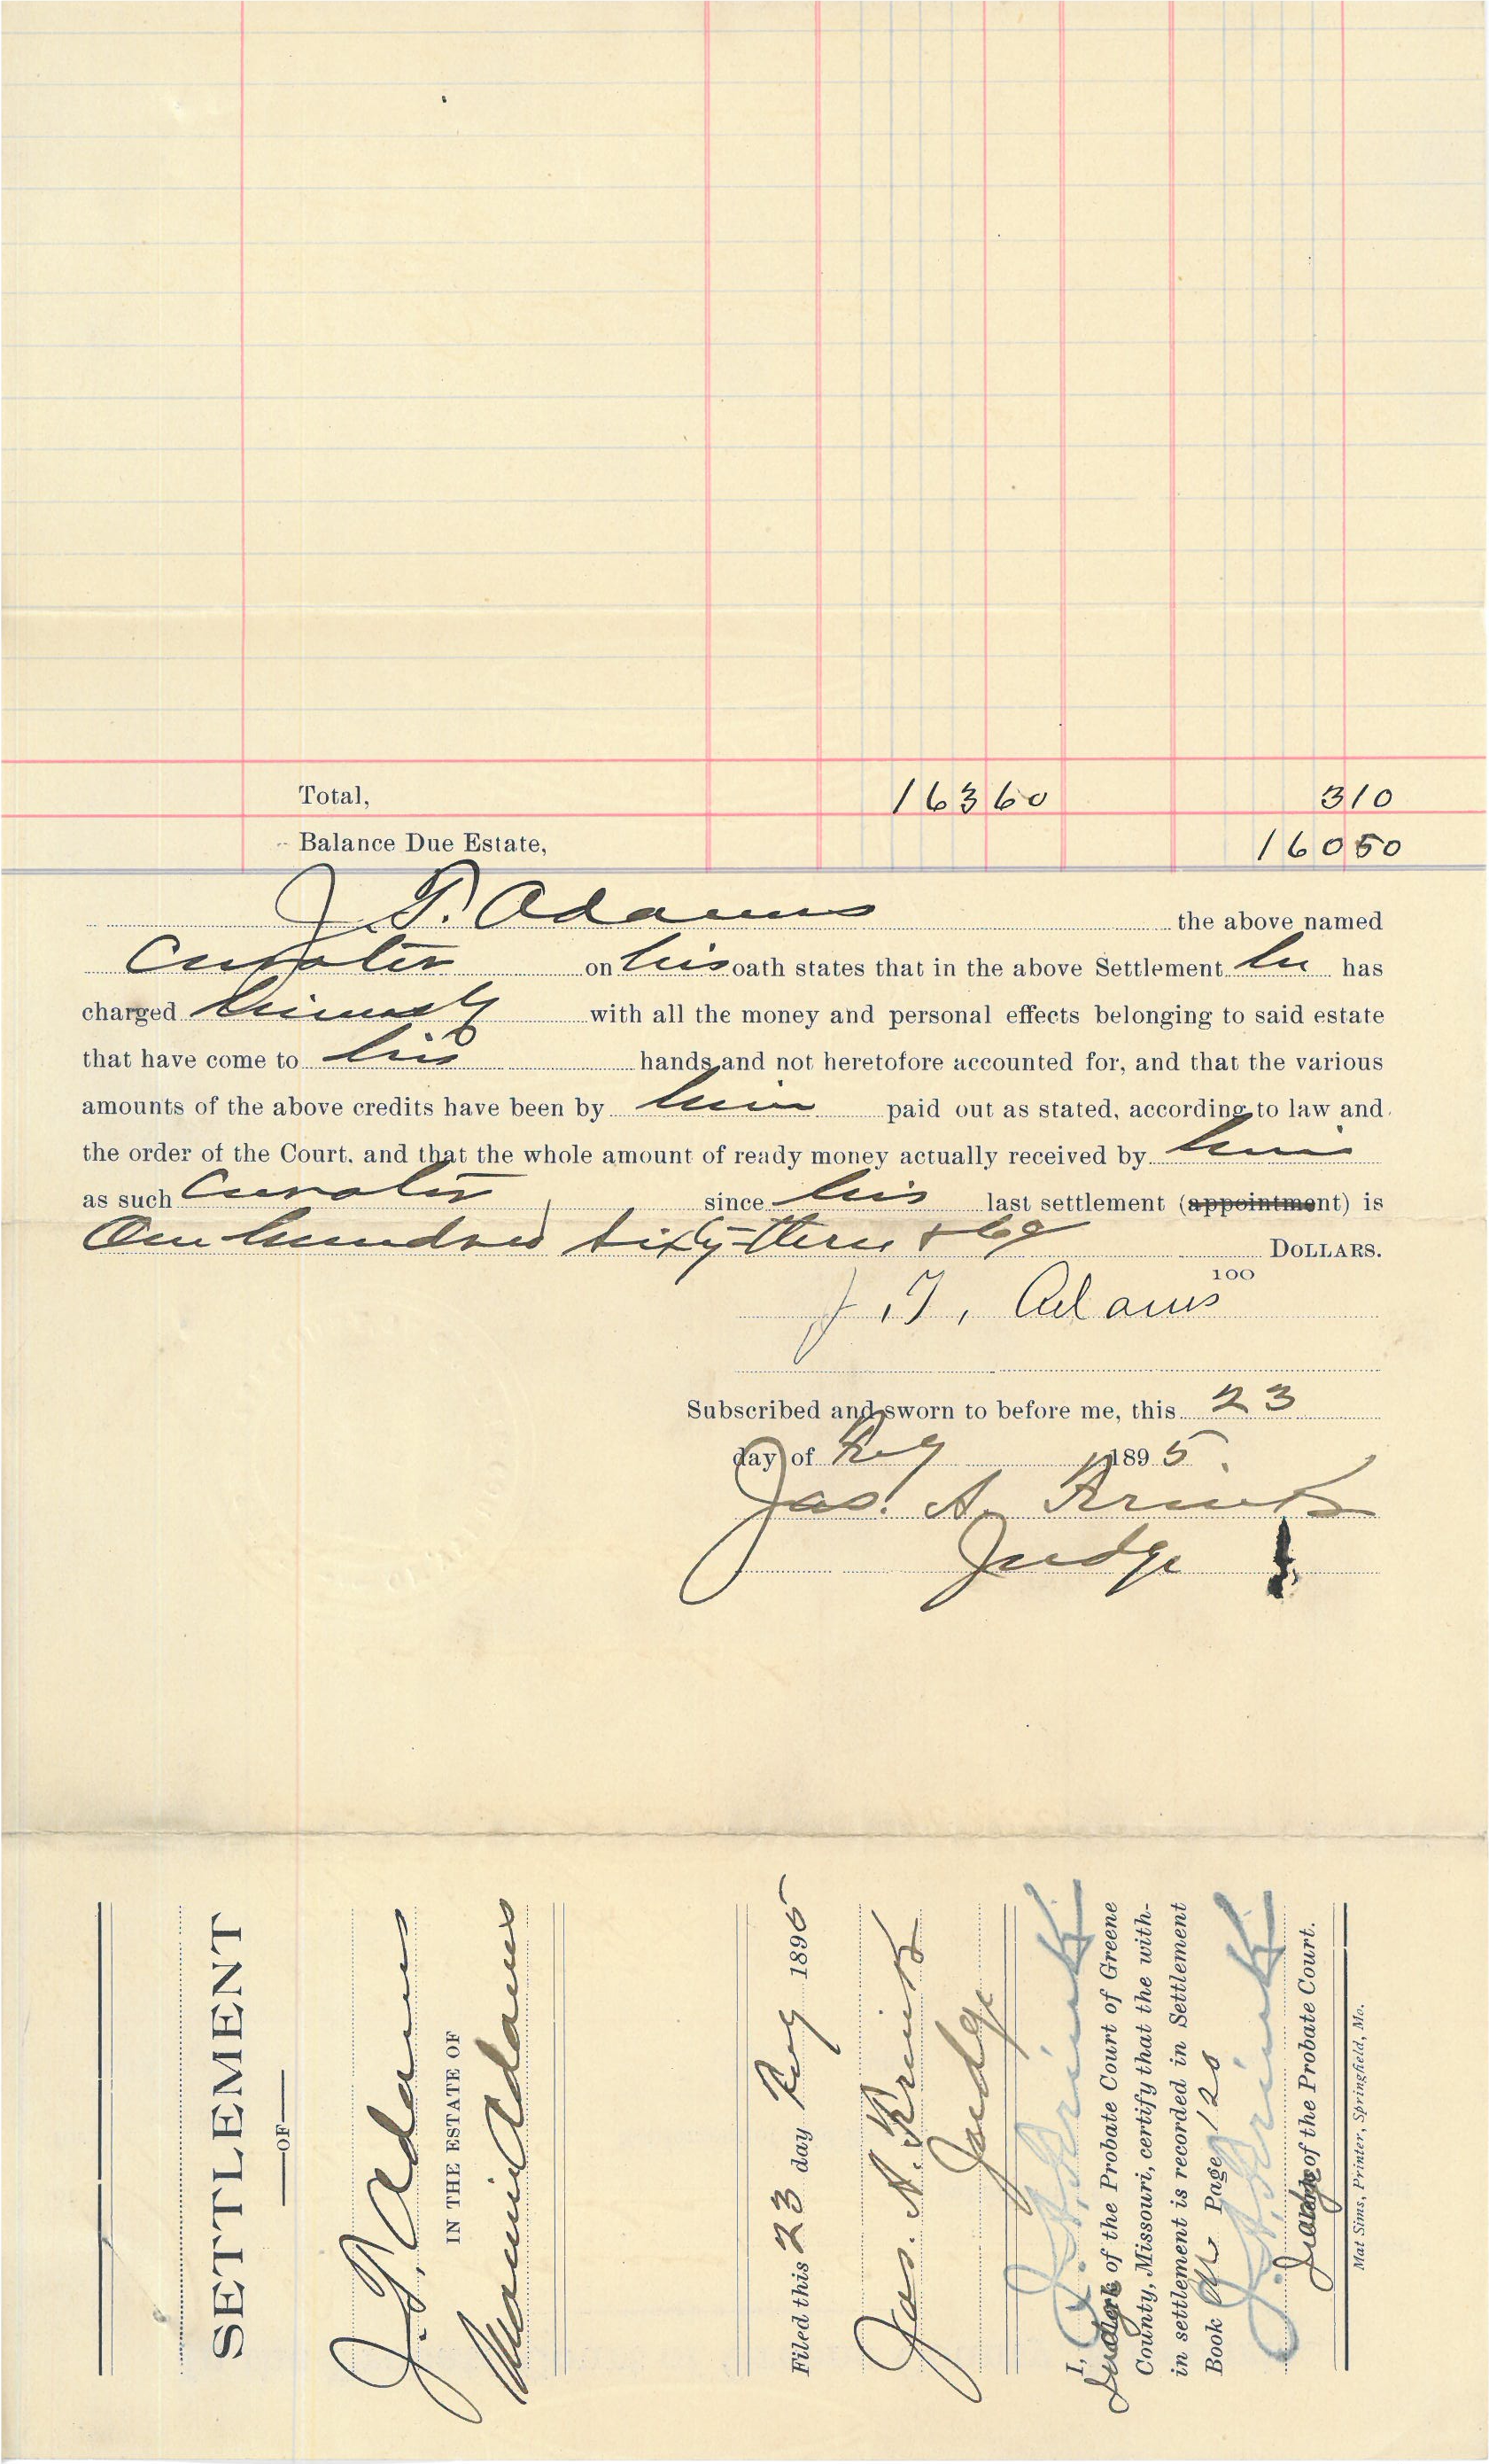 Total, 163 60 3 10
Balance Due Estate, 160 50
J. T. Adams the above named
Curator on his oath states that in the above Settlement he has
charged himself with all the money and personal effects belonging to said estate
that have come to his hands and not heretofore accounted for, and that the various
amounts of the above credits have been by him paid out as stated, according to law and
the order of the Court, and that the whole amount of ready money actually received by him
as such Curator since his last settlement (appointment) is
One hundred sixty-three & 60 DOLLARS.
100
J. T. Adams
Subscribed and sworn to before me, this 23
day of 1895.
Jas. A.
Judge
SETTLEMENT
OF
J. T. Adams
IN THE ESTATE OF
Adams
Filed this 23 day 1895
Jas. A.
Judge
I, J. A.
Judge of the Probate Court of Greene
County, Missouri, certify that the with-
in settlement is recorded in Settlement
Book Page 120
J. A.
Judge of the Probate Court.
Mat Sims, Printer, Springfield, Mo.